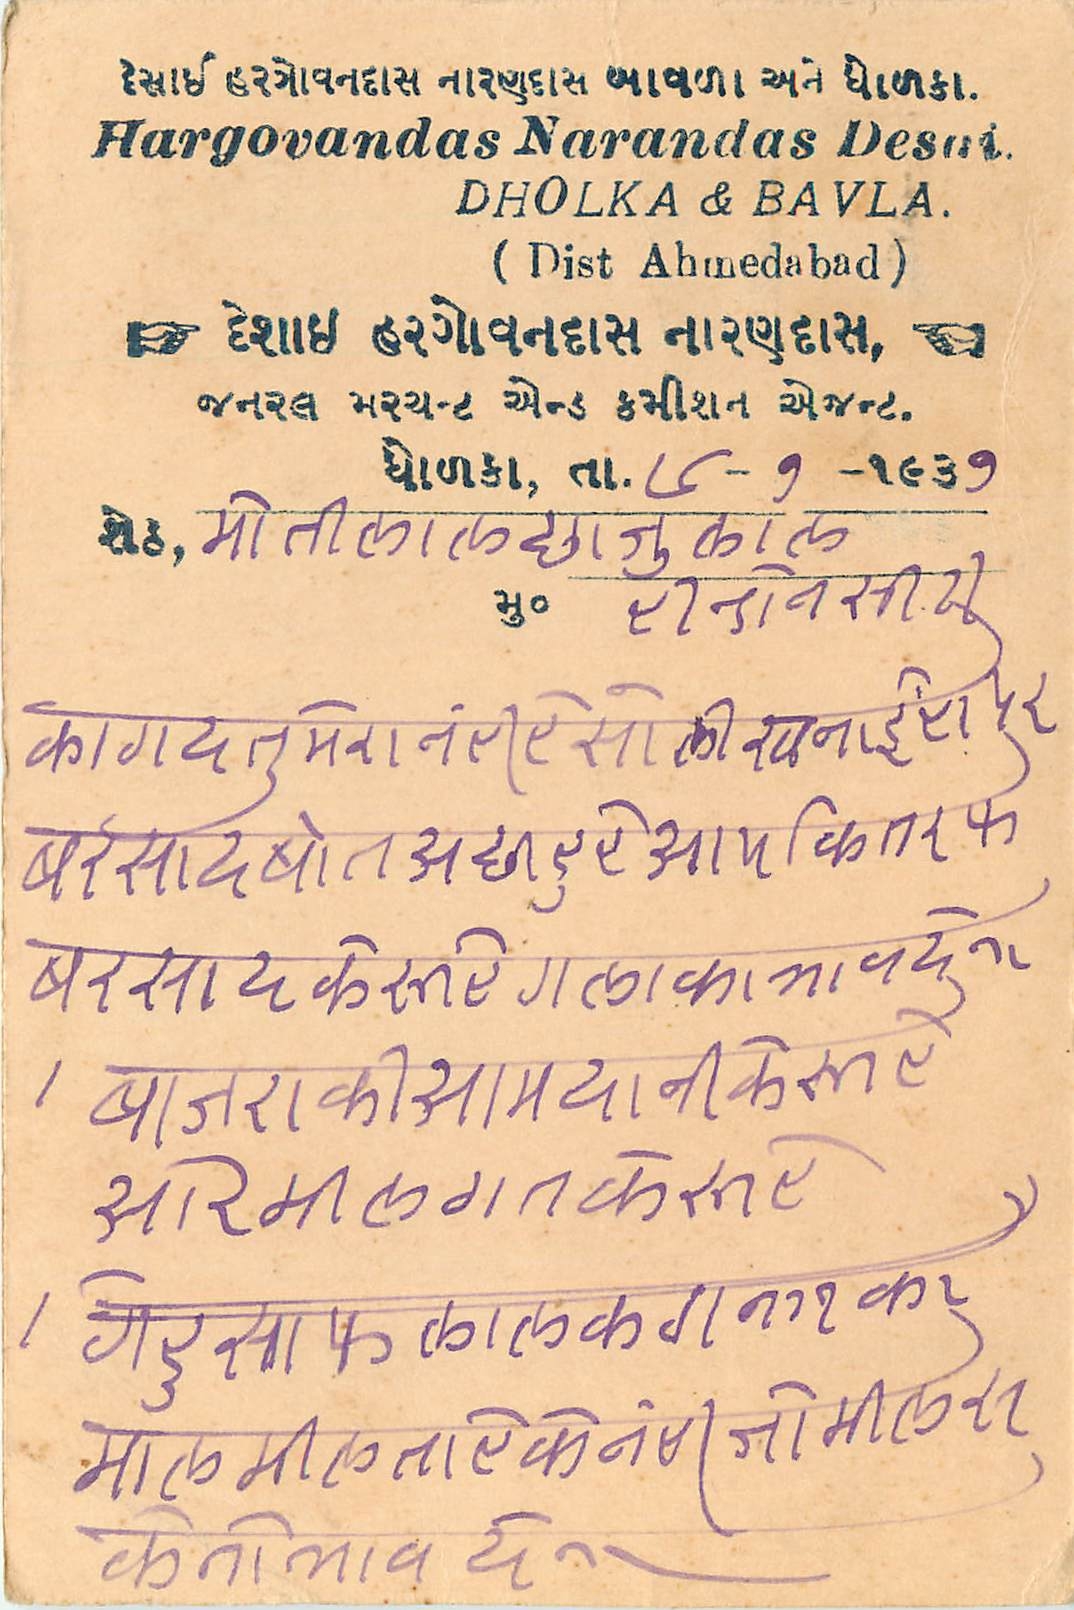 દેસાઈ હરગોવનદાસ નારણદાસ બાવળા અને ધોળકા.
Hargovandas Narandas Desai.
DHOLKA & BAVLA.
( Dist Ahmedabad )
દેશાઇ હરગોવનદાસ નારણદાસ,
જનરલ મરચન્ટ એન્ડ કમીશન એજન્ટ.
ધોળકા, તા. ૧૮-૭-૧૯૩૭
શેઠ, मोतीलाल छाजुलाल
મુ૦
कागद तुमेरा नंही हे सो लीखना ईहा पर
बरसाद बोत अछा हुहे आप कि तरफ
बरसाद केसा हे गला का भाव देना
। बाजरा की आमदानी केसा हे
ओर मीलगत केसा हे
। गेहु साफ लाल
माल मीलता हे के नंही जो मील सा
के तो भाव देना